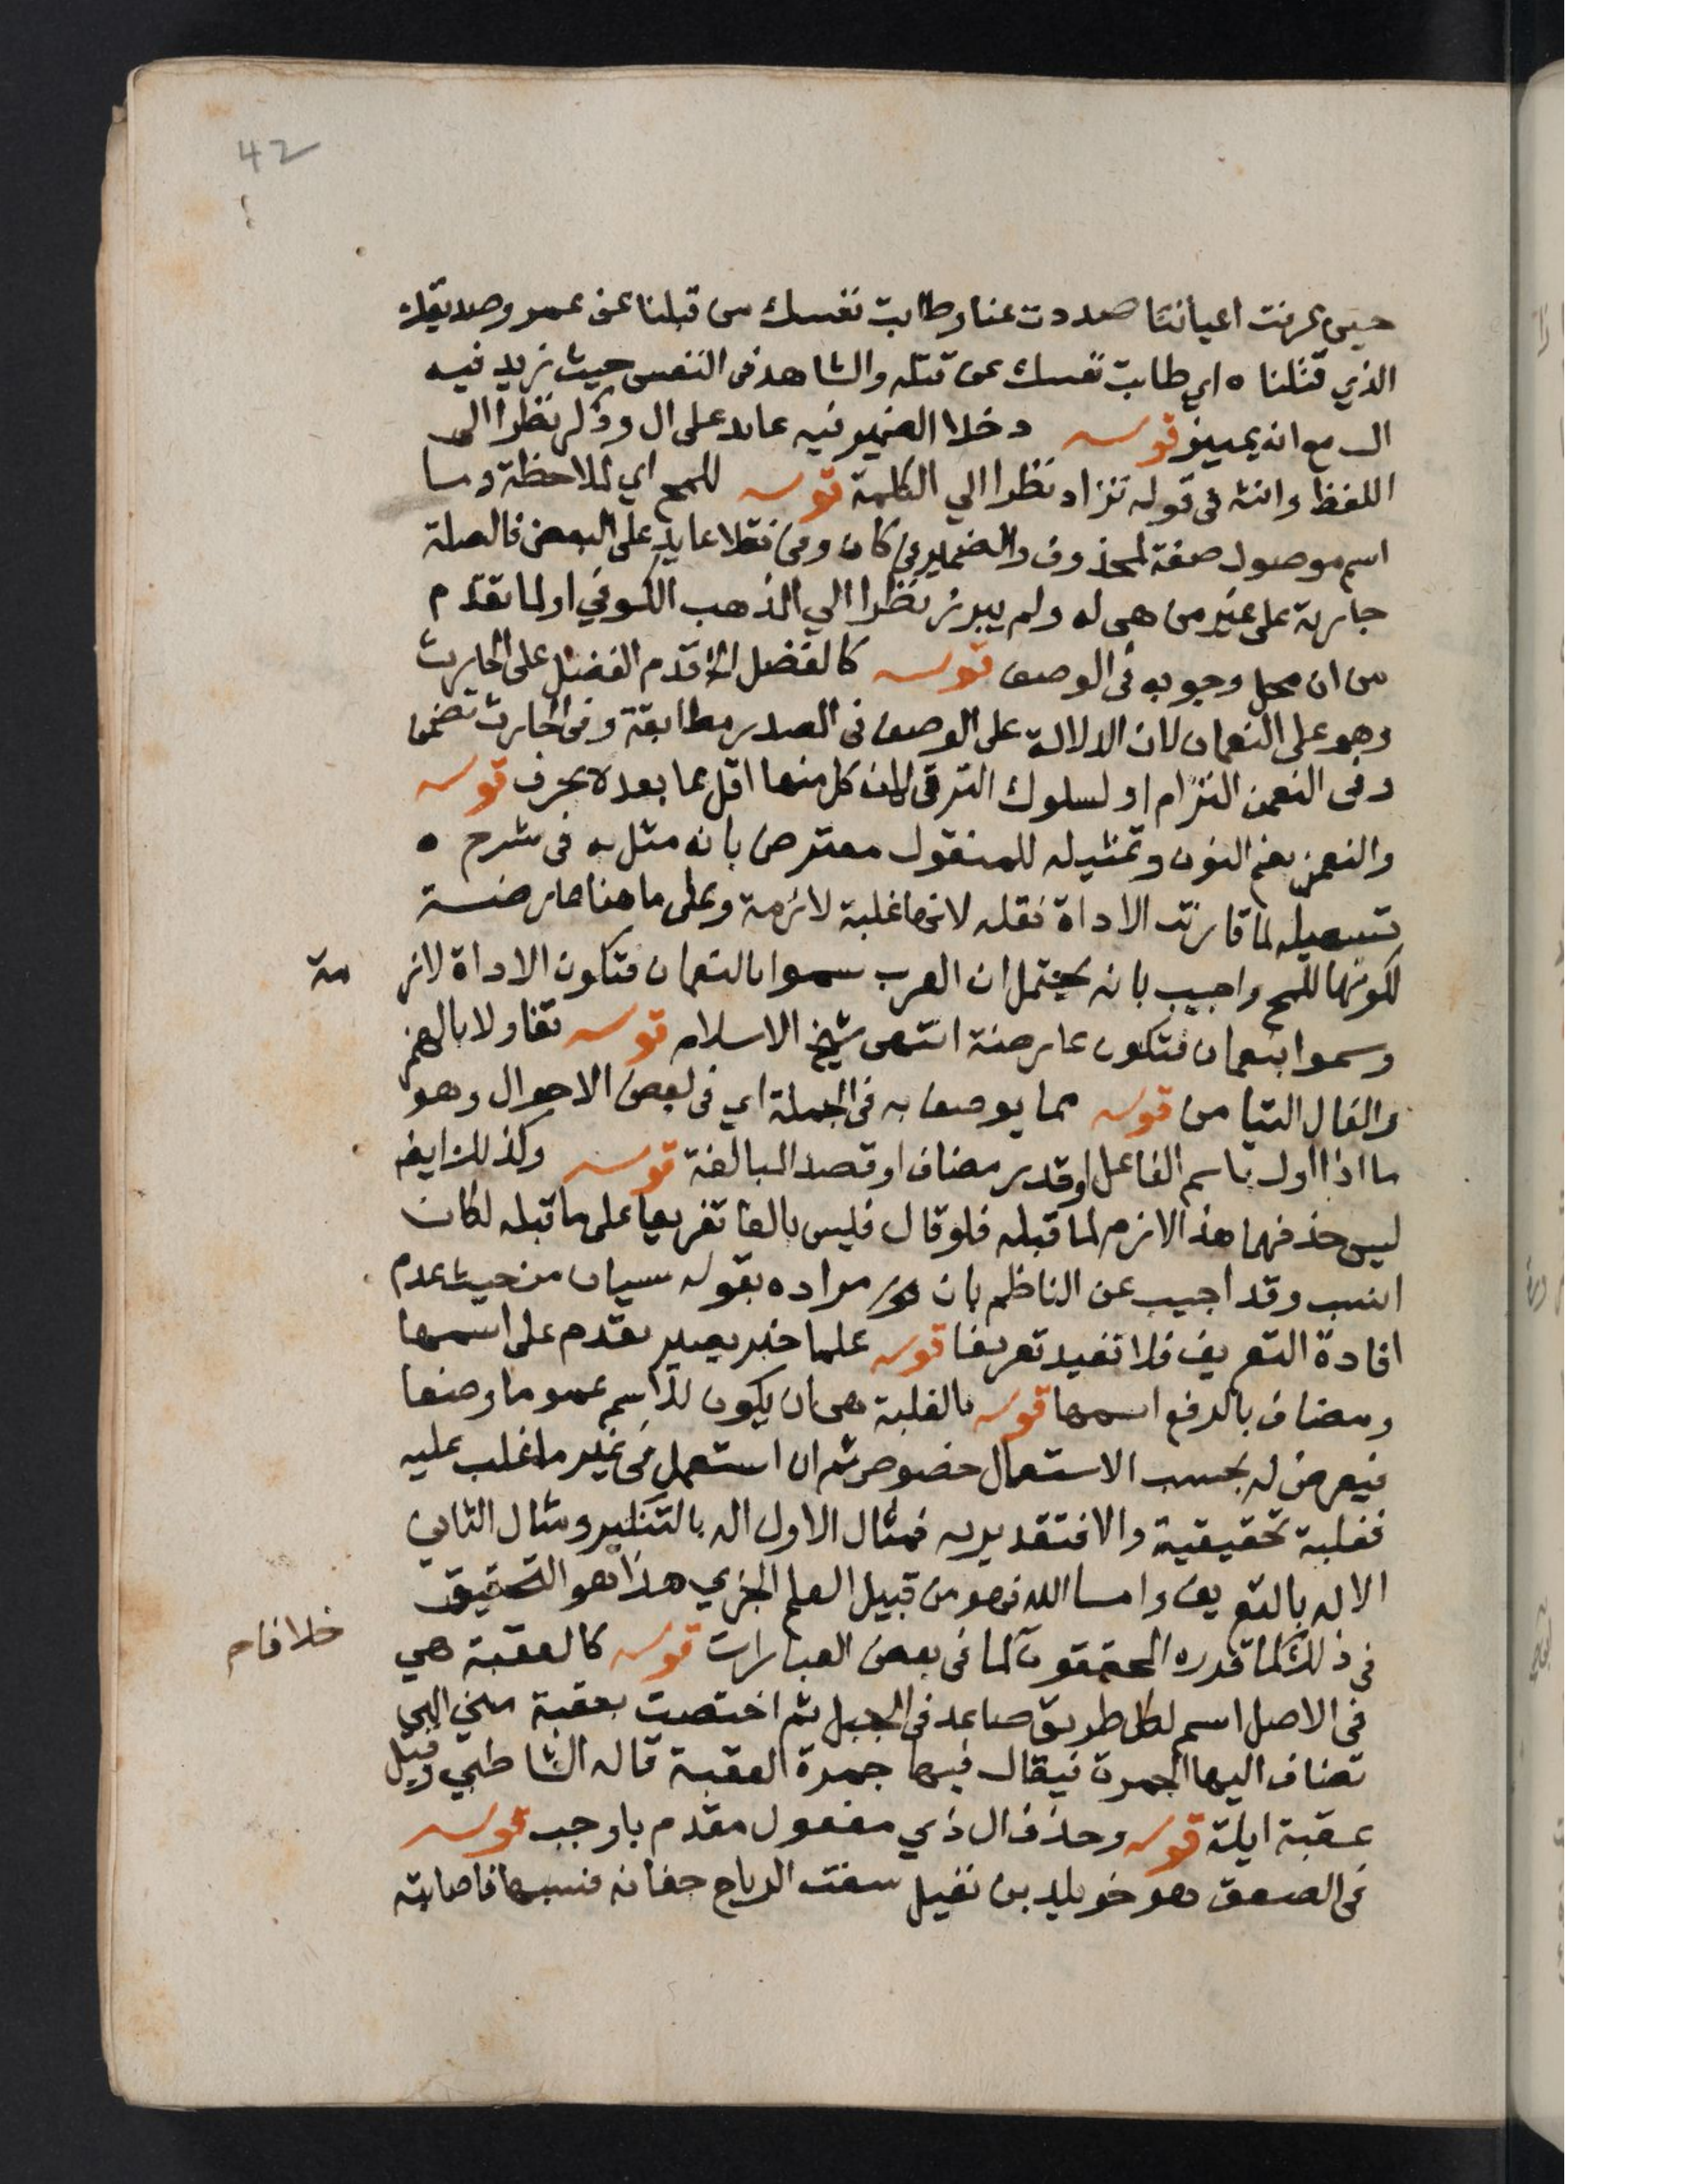 42
حين عرفت اعياننا صددت عنا وطابت نفسك من قبلنا عن عمرو صديقك
الذي قتلنا ه اي طابت نفسك عن قتله والشاهد في النفس حيث زيد فيه
ال مع انه تمييز قوله دخلا الضمير فيه عايد على ال وذكر نظرا الى
اللفظ وانثه في قوله تزاد نظرا الي الكلمة قوله للمح اي لملاحظة وما
اسم موصول صفة لمحذوف والضمير في كان وفي نقلا عايد على البعض فالصلة
جارية على غير من هى له ولم يبرز نظرا الي المذهب الكوفي او لما تقدم
من ان محل وجوبه فى الوصف قوله كالفضل الخ قدم الفضل على الحارث
وهو على النعمان لان الدلالة على الوصف فى المصدر مطابقة وفى الحارث تضمن
وفى النعمن التزام او لسلوك الترقى لان كل منها اقل مما بعده بحرف قوله
والنعمن بضم النون وتمثيله للمنقول معترض بانه مثل به فى شرح ه
تسهيله لما قارنت الاداة نقله لانها غلبة لازمة وعلى ما هنا عارضة
لكونها للمح واجيب بانه يحتمل ان العرب سموا بالنعمان فتكون الاداة لاز مة
وسموا بنعمان فتكون عارضة انتهى شيخ الاسلام قوله تفاولا بالهمز
والفال التيامن قوله مما يوصف به فى الجملة اي فى بعض الاحوال وهو
ما اذا اول باسم الفاعل او قدر مضاف او قصد المبالغة قوله وكذلك ايضا
ليس حذفهما هذا لازم لما قبله فلو قال فليس بالفا تفريعا على ما قبله لكان
انسب وقد اجيب عن الناظم بان مراده بقوله سيان من حيث عدم
افادة التعريف فلا تفيد تعريفا قوله علما خبر يصير مقدم على اسمها
ومضاف بالرفع اسمها قوله بالغلبة هى ان يكون للاسم عموما وضعا
فيعرض له بحسب الاستعمال خصوص ثم ان استعمل فى غير ما غلب عليه
فغلبة تحقيقية والا فتقديريه فمثال الاول اله بالتنكير ومثال الثاني
الاله بالتعريف واما الله فهو من قبيل العلم الجزي هذا هو التحقيق
فى ذلك كما قدره المحققون لما فى بعض العبارات قوله كالعقبة هي
خلافا م
فى الاصل اسم لكل طريق صاعد فى الجبل ثم اختصت بعقبة منى التي
تضاف اليها الجمرة فيقال فيها جمرة العقبة قاله الشاطبي وقيل
عقبة ايلة قوله وحذف ال ذي مفعول مقدم باوجب قوله
فى الصعق هو خويلد بن نفيل سفت الرياح جفانه فسبها فاصابته